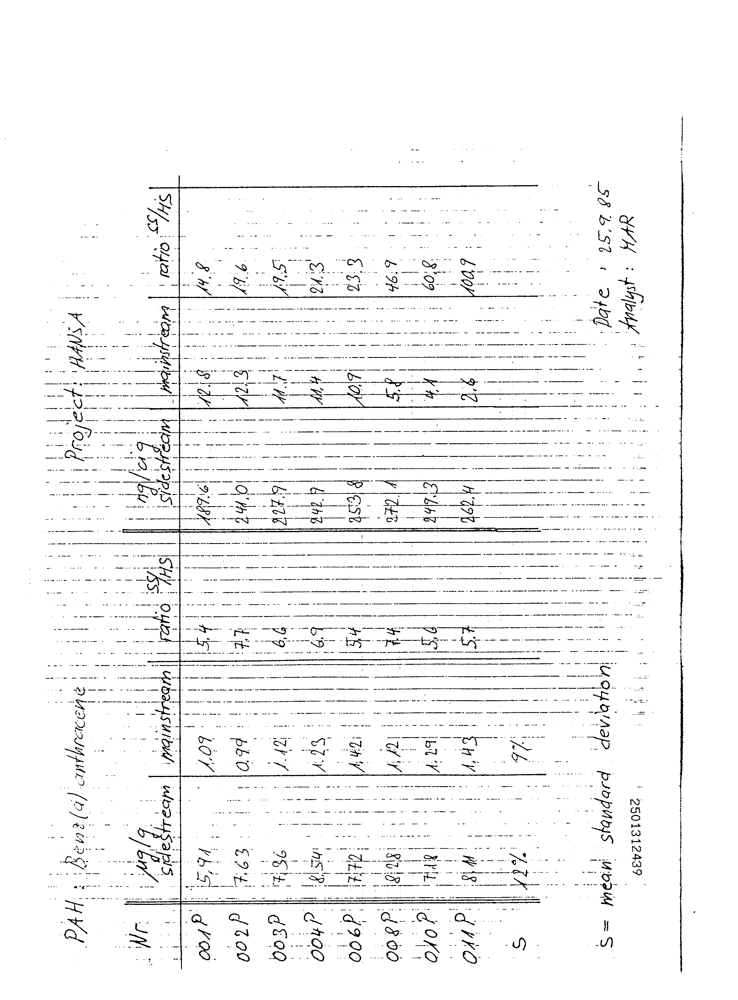 PAH : Benz(a) anthracene Project: HANSA
µg/g ng/cig
Nr. sidestream mainstream ratio SS/MS sidestream mainstream ratio SS/MS
001P 5,91 1.09 5,4 189.6 12.8 14,8
002P 7.63 0.99 7,7 241,0 12.3 19.6
003P 7,36 1.12 6,6 227.9 11.7 19,5
004P 8,54 1.23 6,9 242.9 11,4 21.3
006P 7,72 1,42 5,4 253.8 10,9 23.3
008P 8,28 1,12 7,4 272.1 5.8 46.9
010P 7,18 1.29 5,6 249.3 4,1 60,8
011P 8,11 1,43 5,7 262.4 2,6 100,9
S 12% 9%
S = mean standard deviation
Date : 25.9.85
Analyst : MAR
2501312439